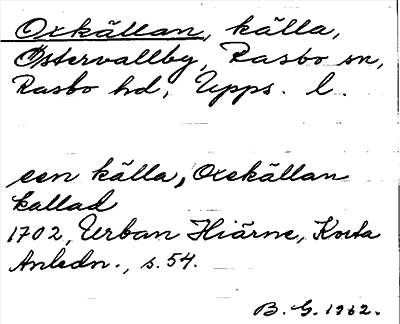 Oxkällan, källa,
Östervallby, Rasbo sn,
Rasbo hd, Upps. l.
een källa, Oxekällan
kallad
1702, Urban Hiärne, Korta
Anledn., s. 54.
B. G. 1962.